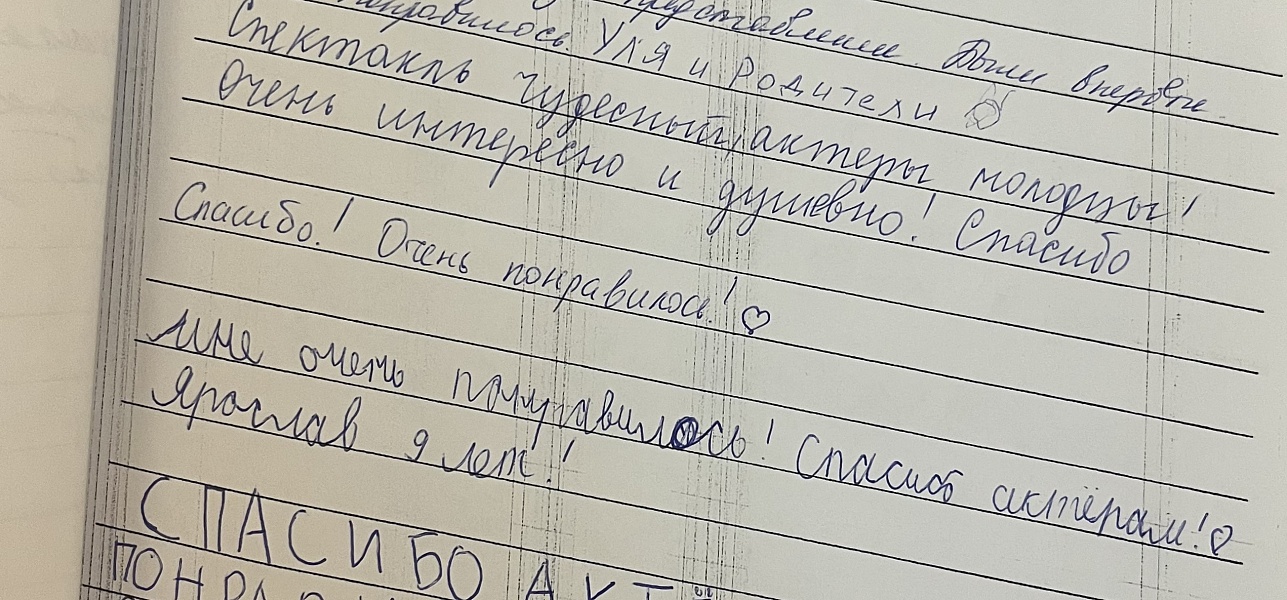 представлении. Были впервые
понравилось. Уля и родители
Спектакль чудесный, актеры молодцы!
Очень интересно и душевно! Спасибо
Спасибо! Очень понравилось! ♡
Мне очень понравилось! Спасибо актёрам! ♡
Ярослав 9 лет!
СПАСИБО АКТЁ
ПОНРАВИ